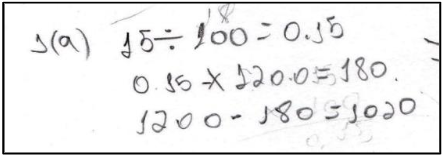 1(a) 15 ÷ 100 = 0.15
0.15 × 1200 = 180.
1200 - 180 = 1020